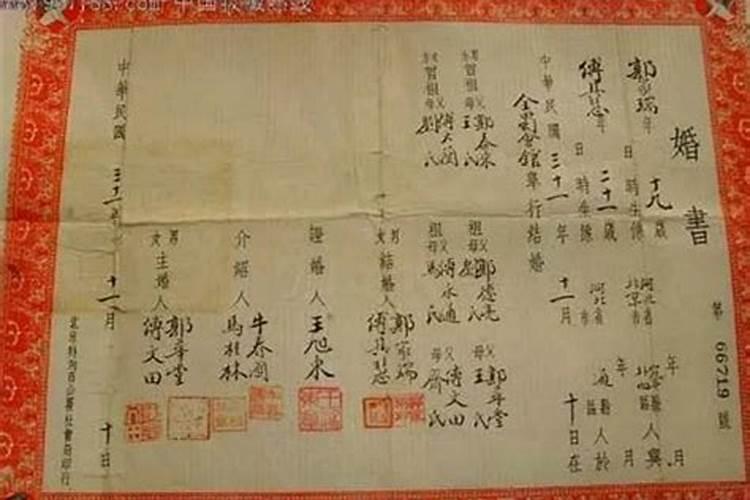 婚書
第 66719 號
郭家瑞 年 月 日 時生係 十九歲 河北省北京市 縣區 人與
傅其慧 年 月 日 時生係 二十一歲 河北省 市 通縣區 人於
中華民國三十一年十一月十日在
全蜀會館舉行結婚
男曾祖父郭春來 祖父郭德亮 父郭華堂
母王氏 祖母 氏 母王氏
女曾祖父傅大 祖父傅永通 父傅文田
母劉氏 祖母馬氏 母齊氏
男女結婚人 郭家瑞
傅其慧
證婚人 王旭東
介紹人 牛春
馬桂林
男女主婚人 郭華堂
傅文田
中華民國三十一年十一月十日
北京特別市公署社會局印行